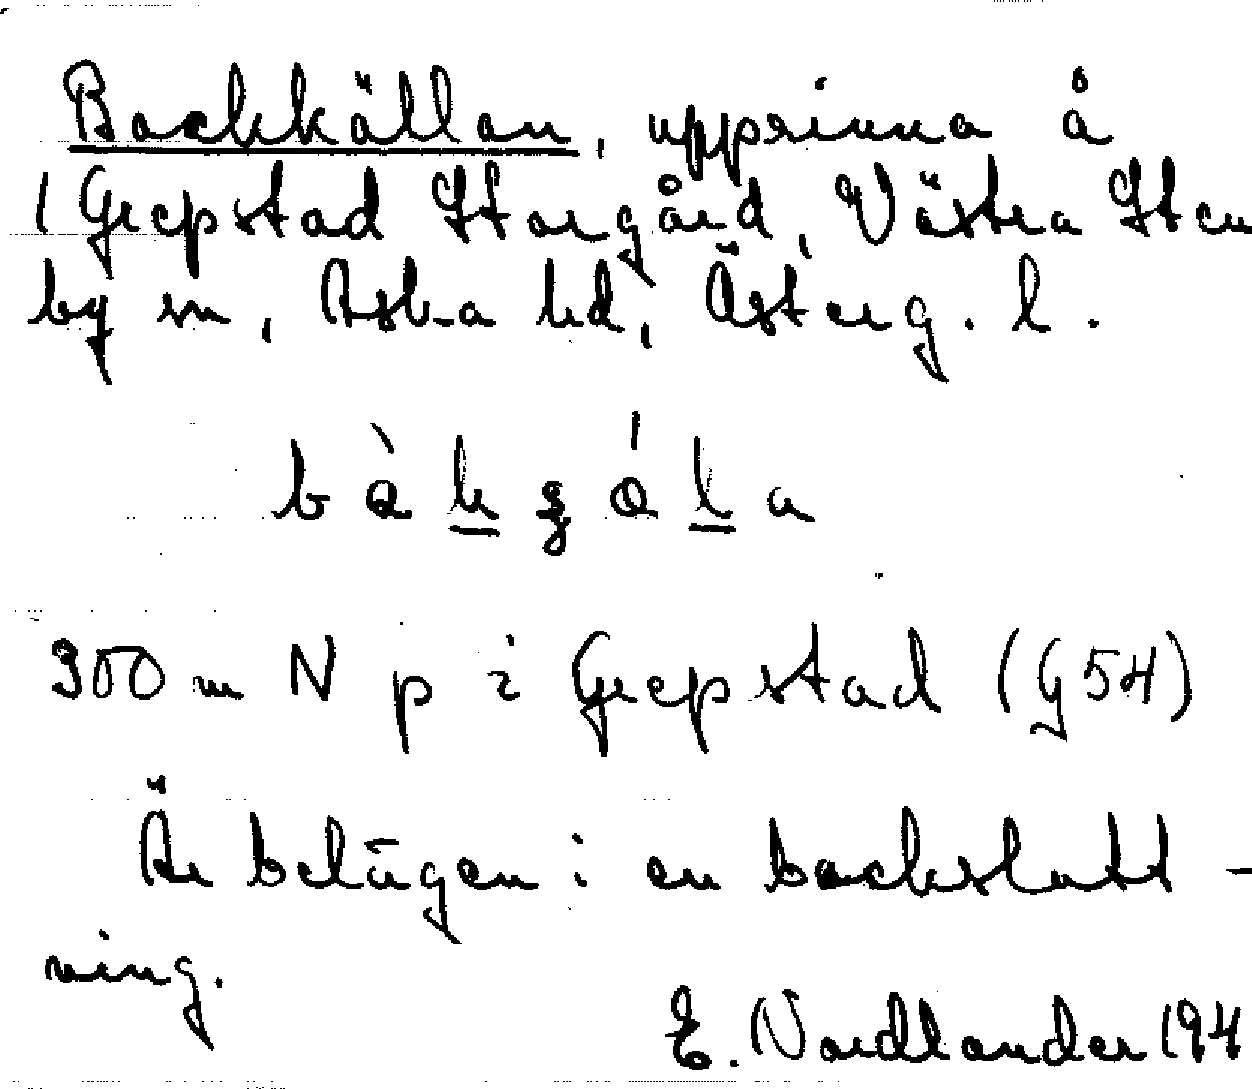 Backkällan, upprinna å
1 Grepstad Storgård, Västra Sten
by sn, Aska hd, Österg. l.
bàkʒála
300 m N p i Grepstad (G54)
Är belägen i en backslutt-
ning.
E. Nordlander 194